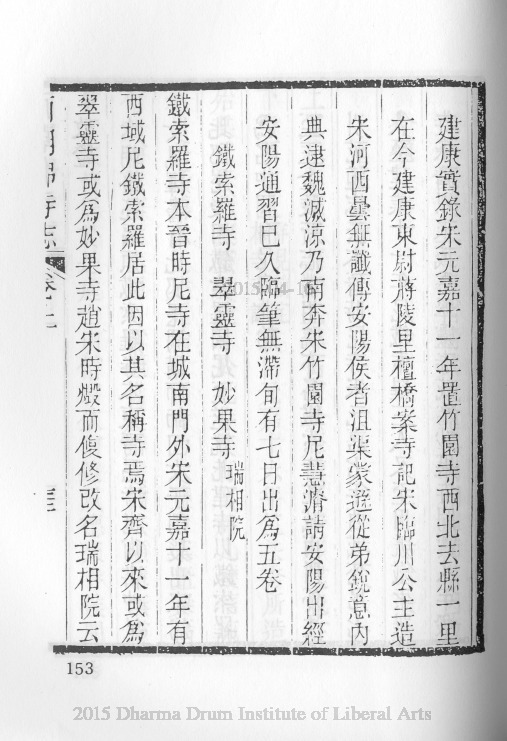 建康實錄宋元嘉十一年置竹園寺西北去縣一里
在今建康東尉蔣陵里檀橋案寺記宋臨川公主造
宋河西曇無讖傳安陽侯者沮渠蒙遜從弟銳意內
典逮魏滅涼乃南奔宋竹園寺尼慧濬請安陽出經
安陽通習巳久臨筆無滯旬有七日出為五卷
鐵索羅寺 翠靈寺 妙果寺 瑞相院
鐵索羅寺本晉時尼寺在城南門外宋元嘉十一年有
西域尼鐵索羅居此因以其名稱寺焉宋齊以來或為
翠靈寺或為妙果寺趙宋時燬而復修改名瑞相院云
寺志 卷上
153
2015 Dharma Drum Institute of Liberal Arts